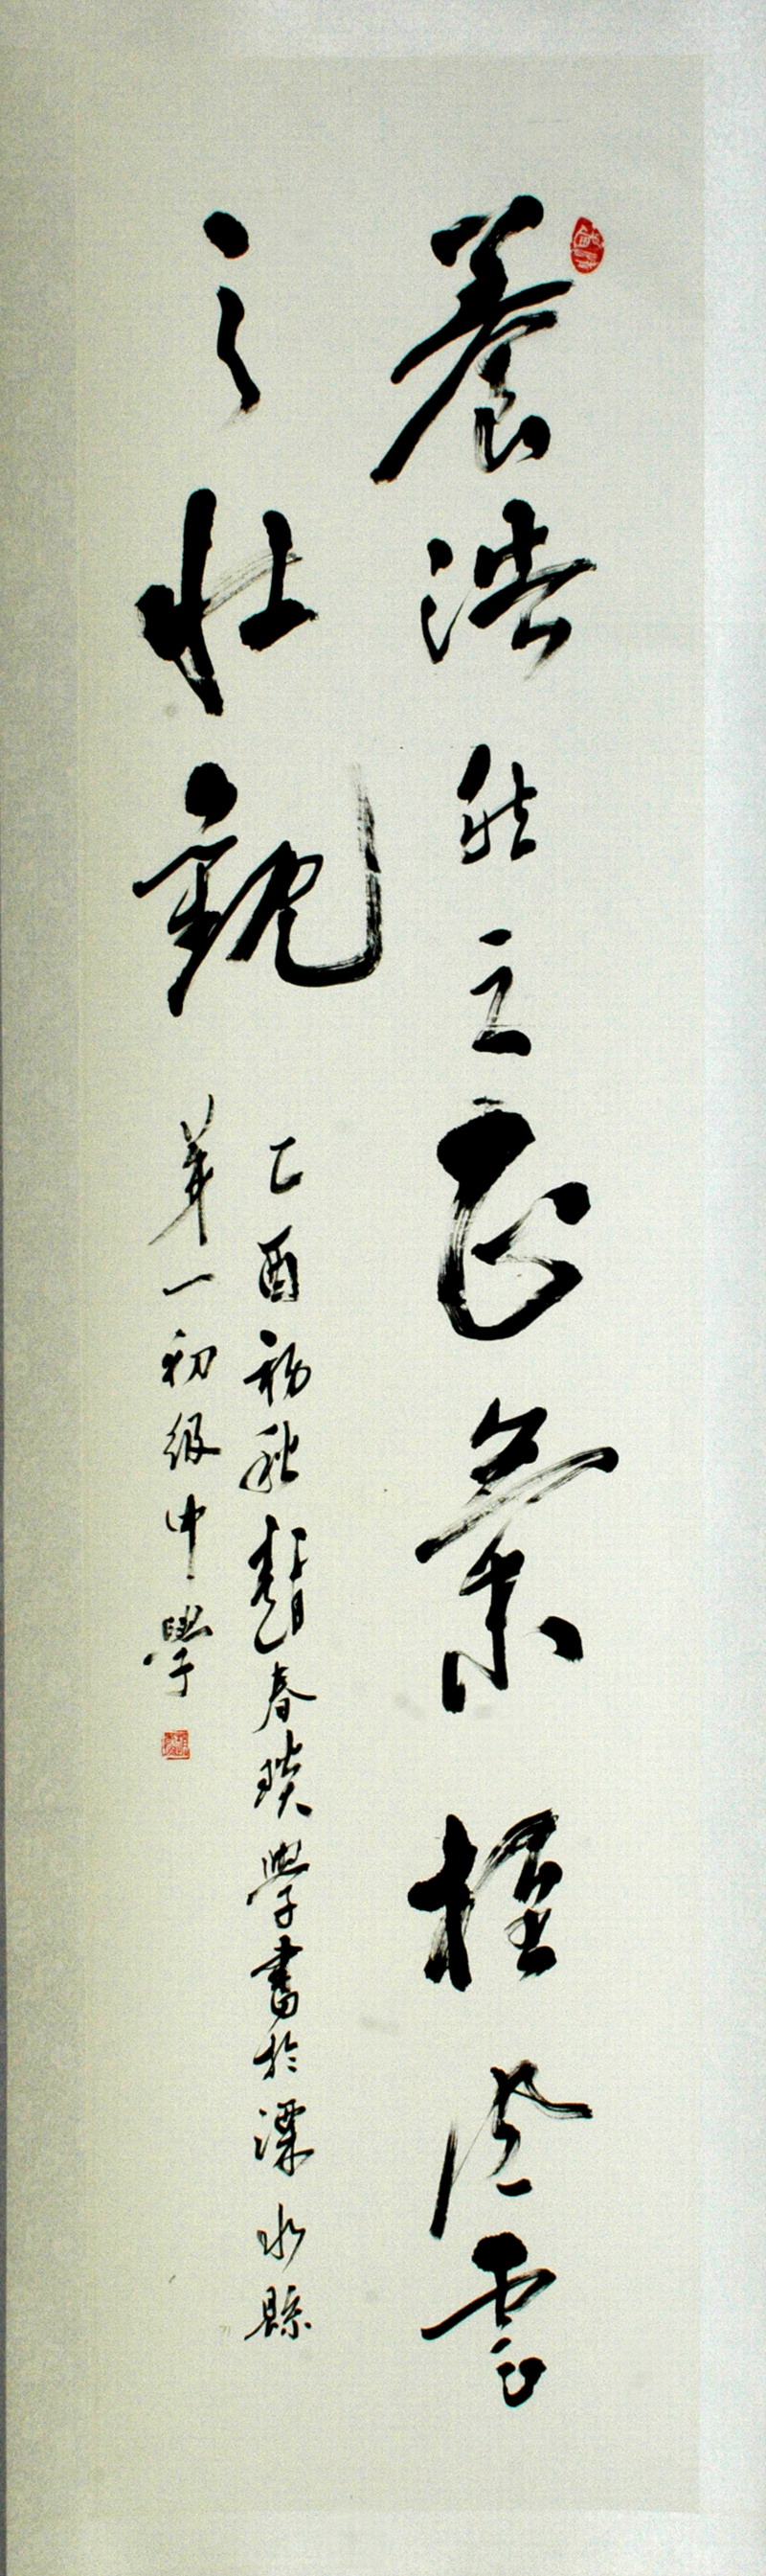 養浩然之正氣極風雲
之壯觀
乙酉初秋趙春瑛學書於溧水縣
第一初級中學